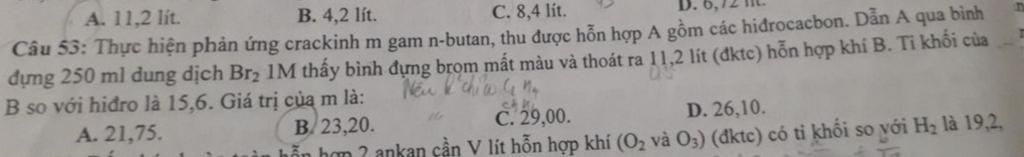 A. 11,2 lít. B. 4,2 lít. C. 8,4 lít. D. 6,72 lít.
Câu 53: Thực hiện phản ứng crackinh m gam n-butan, thu được hỗn hợp A gồm các hiđrocacbon. Dẫn A qua bình
đựng 250 ml dung dịch Br₂ 1M thấy bình đựng brom mất màu và thoát ra 11,2 lít (đktc) hỗn hợp khí B. Tỉ khối của
B so với hiđro là 15,6. Giá trị của m là:
A. 21,75. B. 23,20. C. 29,00. D. 26,10.
hỗn hợp 2 ankan cần V lít hỗn hợp khí (O₂ và O₃) (đktc) có tỉ khối so với H₂ là 19,2,